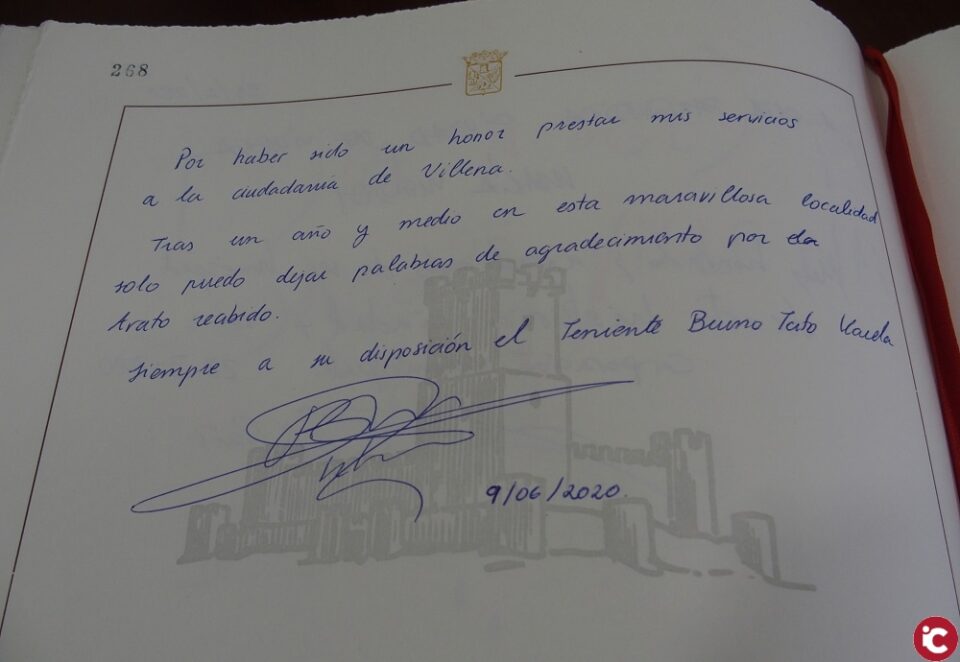 268
Por haber sido un honor prestar mis servicios
a la ciudadanía de Villena.
Tras un año y medio en esta maravillosa localidad
solo puedo dejar palabras de agradecimiento por
trato recibido.
Siempre a su disposición el Teniente Bruno
9/06/2020.
iC